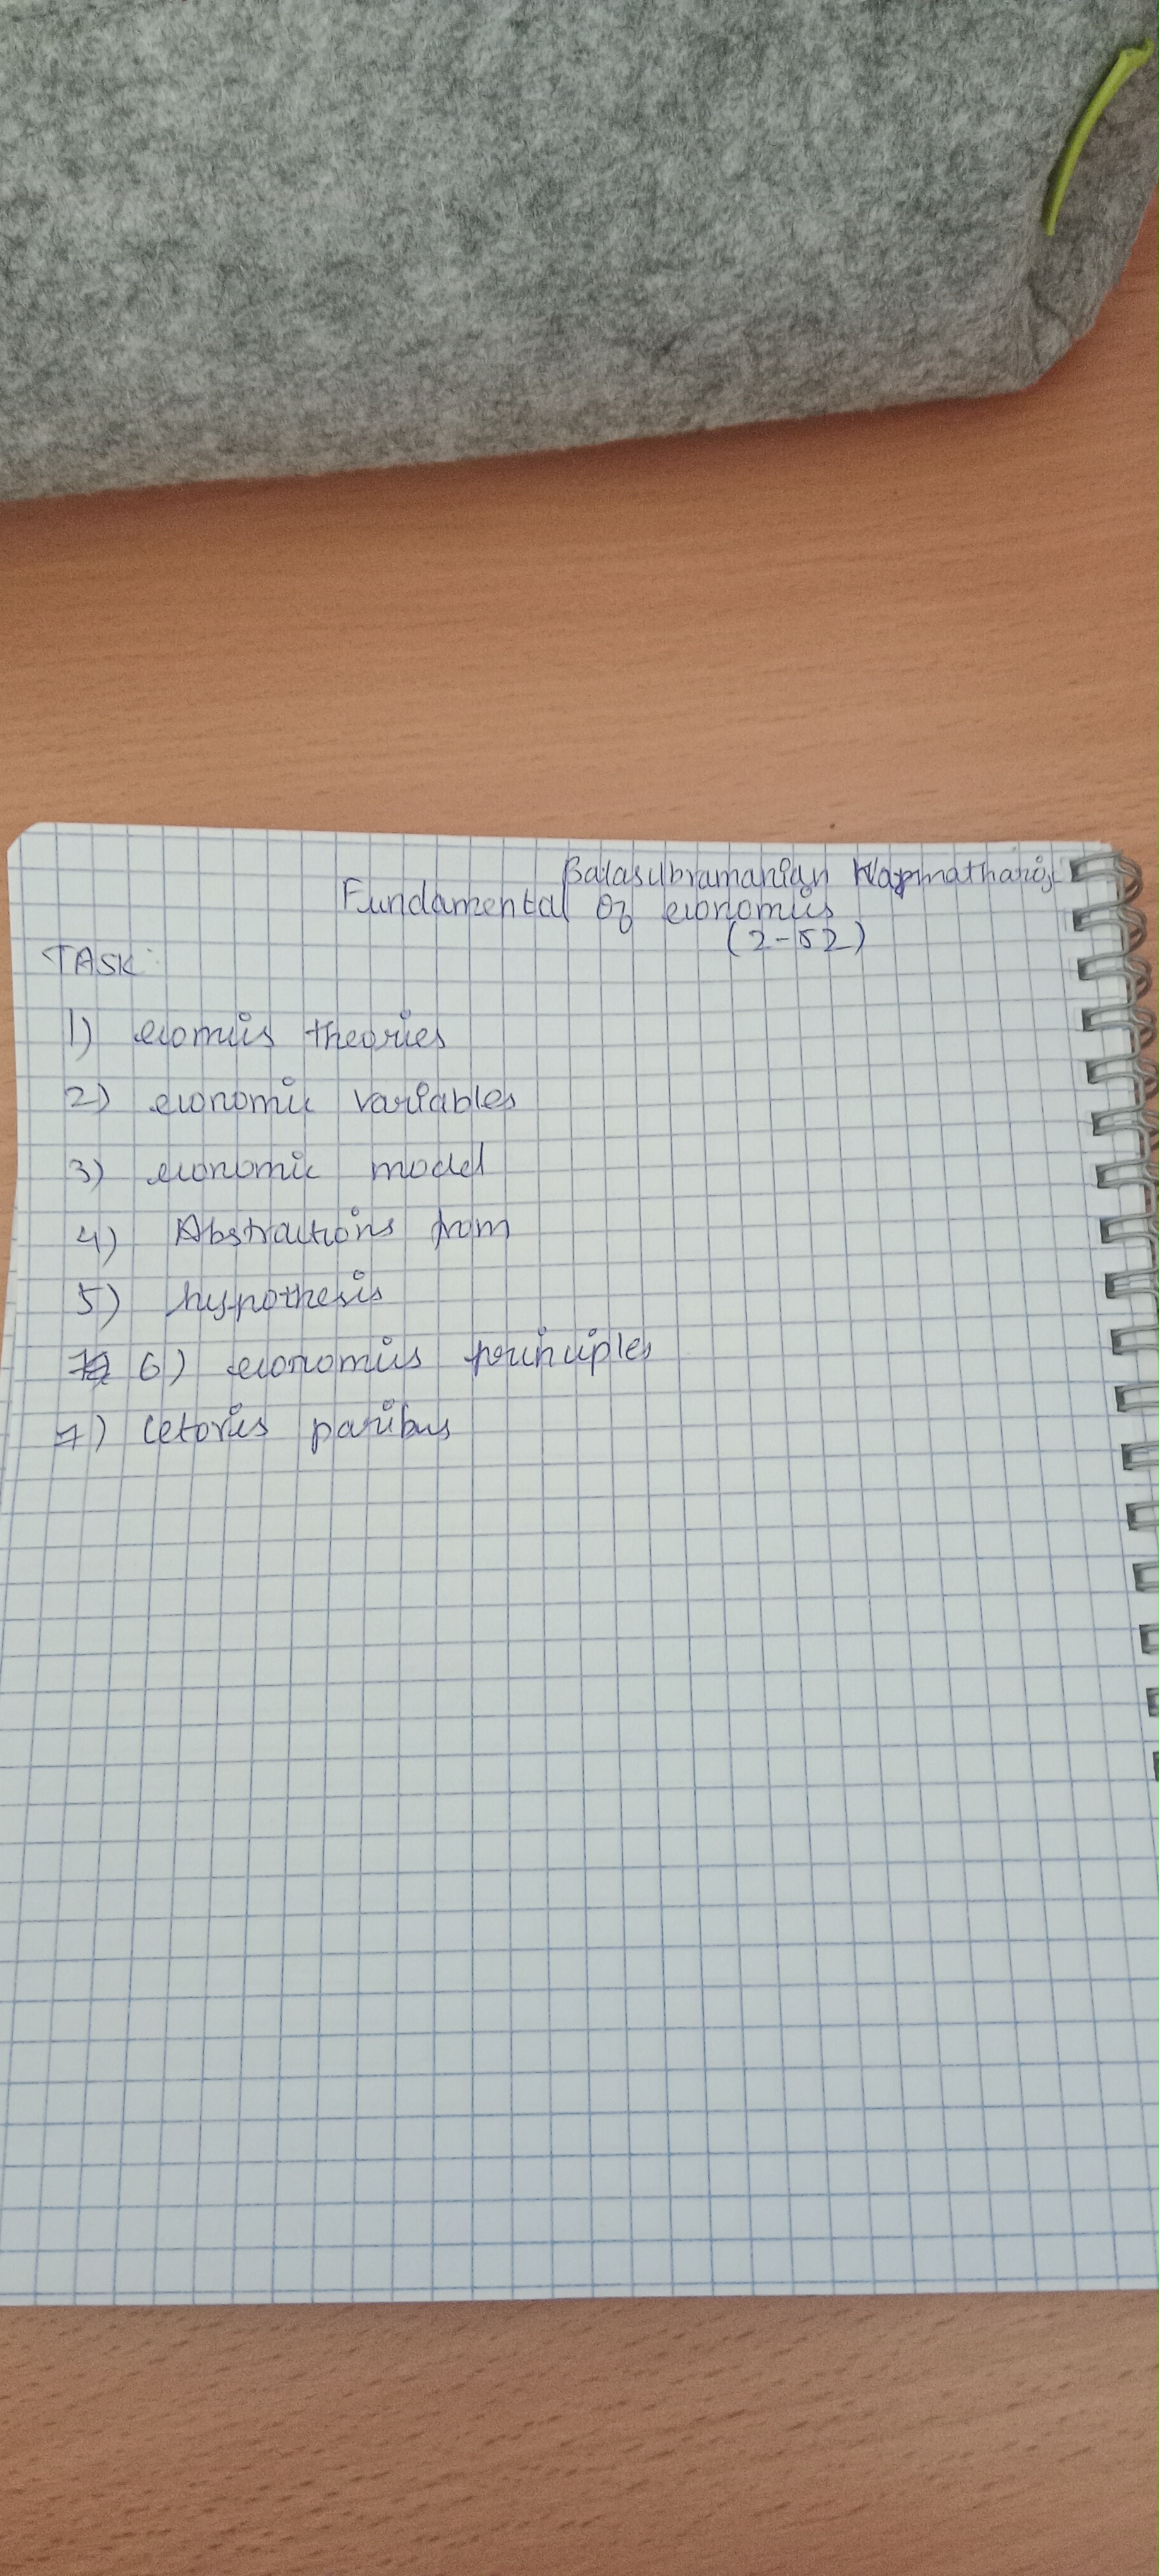 Balasubramanian
Fundamental of economics
(2-52)
TASK:
1) ecomics theories
2) economic variables
3) economic model
4) Abstractions from
5) hypothesis
6) economics principles
7) Cetoris paribus